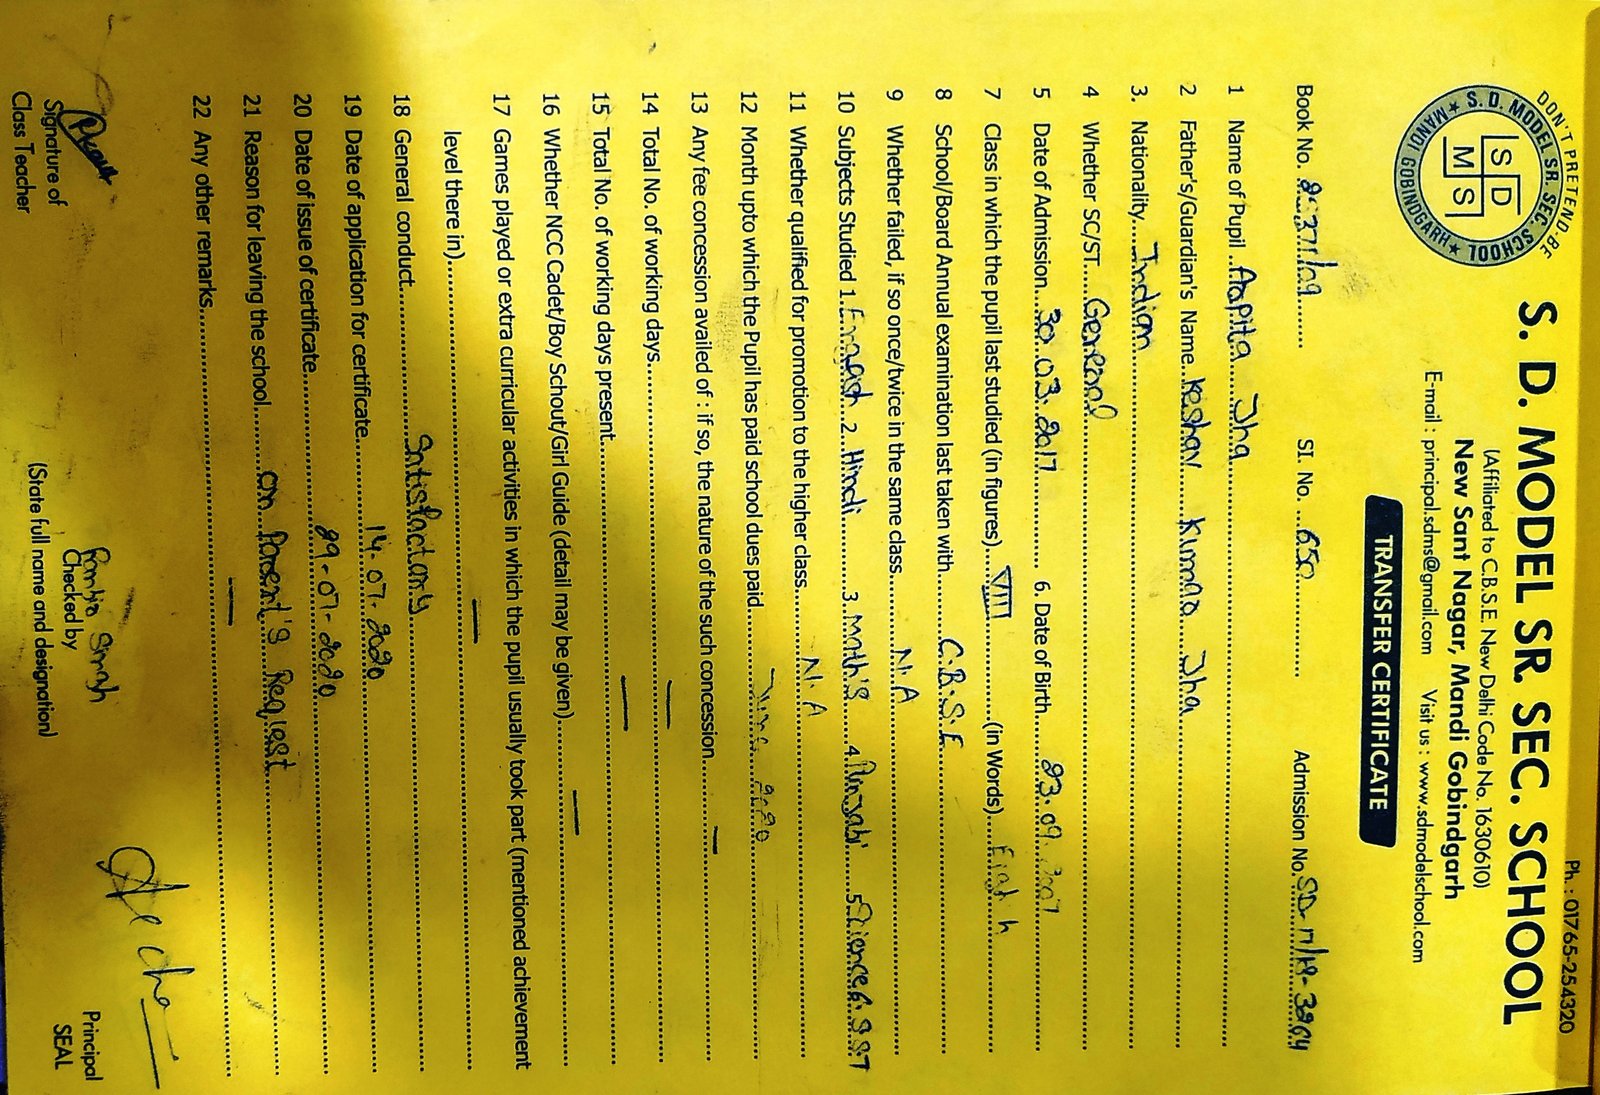 Ph : 01765-254320
DON'T PRETEND-BE
S. D. MODEL SR. SEC. SCHOOL
MANDI GOBINDGARH
S D
M S
S. D. MODEL SR. SEC. SCHOOL
(Affiliated to C.B.S.E. New Delhi Code No. 1630610)
New Sant Nagar, Mandi Gobindgarh
E-mail : principal.sdms@gmail.com Visit us : www.sdmodelschool.com
TRANSFER CERTIFICATE
Book No. SI. No. 650 Admission No.
1 Name of Pupil Jha
2 Father's/Guardian's Name Keshav Kumar Jha
3. Nationality Indian
4 Whether SC/ST General
5 Date of Admission 30.03.2017 6. Date of Birth 23.09.2007
7 Class in which the pupil last studied (in figures) VIII (in Words) Eighth
8 School/Board Annual examination last taken with C.B.S.E
9 Whether failed, if so once/twice in the same class N.A
10 Subjects Studied 1. English 2. Hindi 3. Math's 4. Punjabi 5. Science 6. S.ST
11 Whether qualified for promotion to the higher class N.A
12 Month upto which the Pupil has paid school dues paid June 2020
13 Any fee concession availed of : if so, the nature of the such concession —
14 Total No. of working days —
15 Total No. of working days present —
16 Whether NCC Cadet/Boy Schout/Girl Guide (detail may be given) —
17 Games played or extra curricular activities in which the pupil usually took part (mentioned achievement
level there in) —
18 General conduct Satisfactory
19 Date of application for certificate 14.07.2020
20 Date of issue of certificate 29.07.2020
21 Reason for leaving the school on Parent's Request
22 Any other remarks —
Signature of
Class Teacher
Singh
Checked by
(State full name and designation)
Principal
SEAL